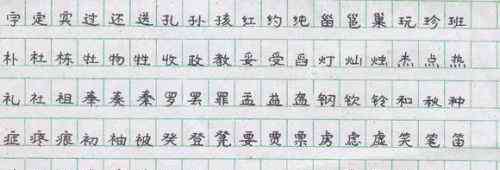 字 定 实 过 还 送 孔 孙 孩 红 约 纯 甾 邕 巢 玩 珍 班
朴 杜 栋 牡 物 牲 收 政 教 妥 受 舀 灯 灿 烛 杰 点 热
礼 社 祖 奉 奏 秦 罗 罢 罪 孟 益 盏 钢 钦 铃 和 秋 种
症 疼 痕 初 袖 被 癸 登 凳 要 贾 票 虏 虑 虚 笑 笔 笛